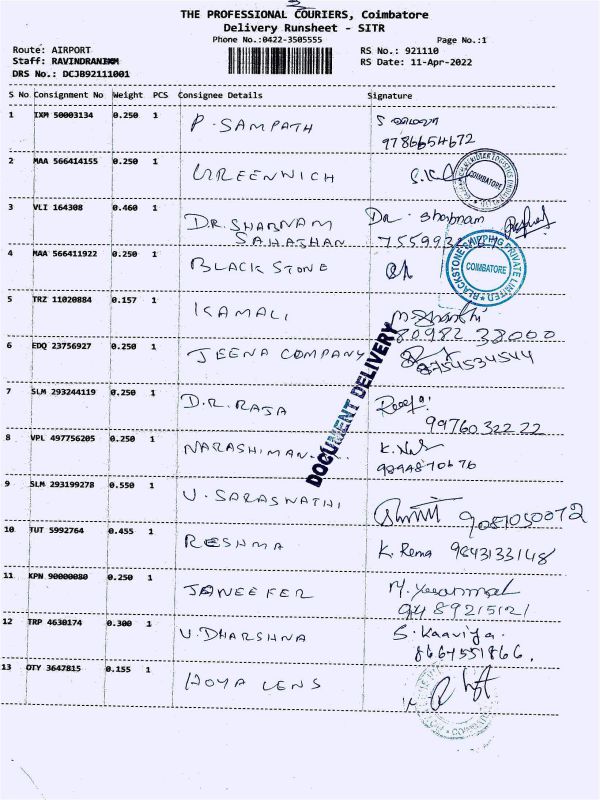 3
THE PROFESSIONAL COURIERS, Coimbatore
Delivery Runsheet - SITR
Phone No.:0422-3505555
Page No.:1
Route: AIRPORT
RS No.: 921110
Staff: RAVINDRANIXM
RS Date: 11-Apr-2022
DRS No.: DCJB92111001
S No Consignment No Weight PCS Consignee Details Signature
1 IXM 50003134 0.250 1 P. SAMPATH
9786654672
2 MAA 566414155 0.250 1 GREENWICH
COIMBATORE
3 VLI 164308 0.460 1 DR. SHABNAM Dr. Shabnam
SAHAJHAN
4 MAA 566411922 0.250 1 BLACK STONE
BLACKSTONE SHIPPING PRIVATE LIMITED
COIMBATORE
5 TRZ 11020884 0.157 1 KAMALI
80982 38000
6 EDQ 23756927 0.250 1 JEENA COMPANY
8754534544
DOCUMENT DELIVERY
7 SLM 293244119 0.250 1 D.R. RAJA
99760 322 22
8 VPL 497756205 0.250 1 NARASHIMAN
9894870676
9 SLM 293199278 0.550 1 V. SARASWATHI
9087050072
10 TUT 5992764 0.455 1 RESHMA K. Rema 9843133148
11 KPN 90000080 0.250 1 JANEEFER
9489215121
12 TRP 4630174 0.300 1 V. DHARSHNA S. Kaaviya.
8667551866.
13 OTY 3647815 0.155 1 HOYA LENS